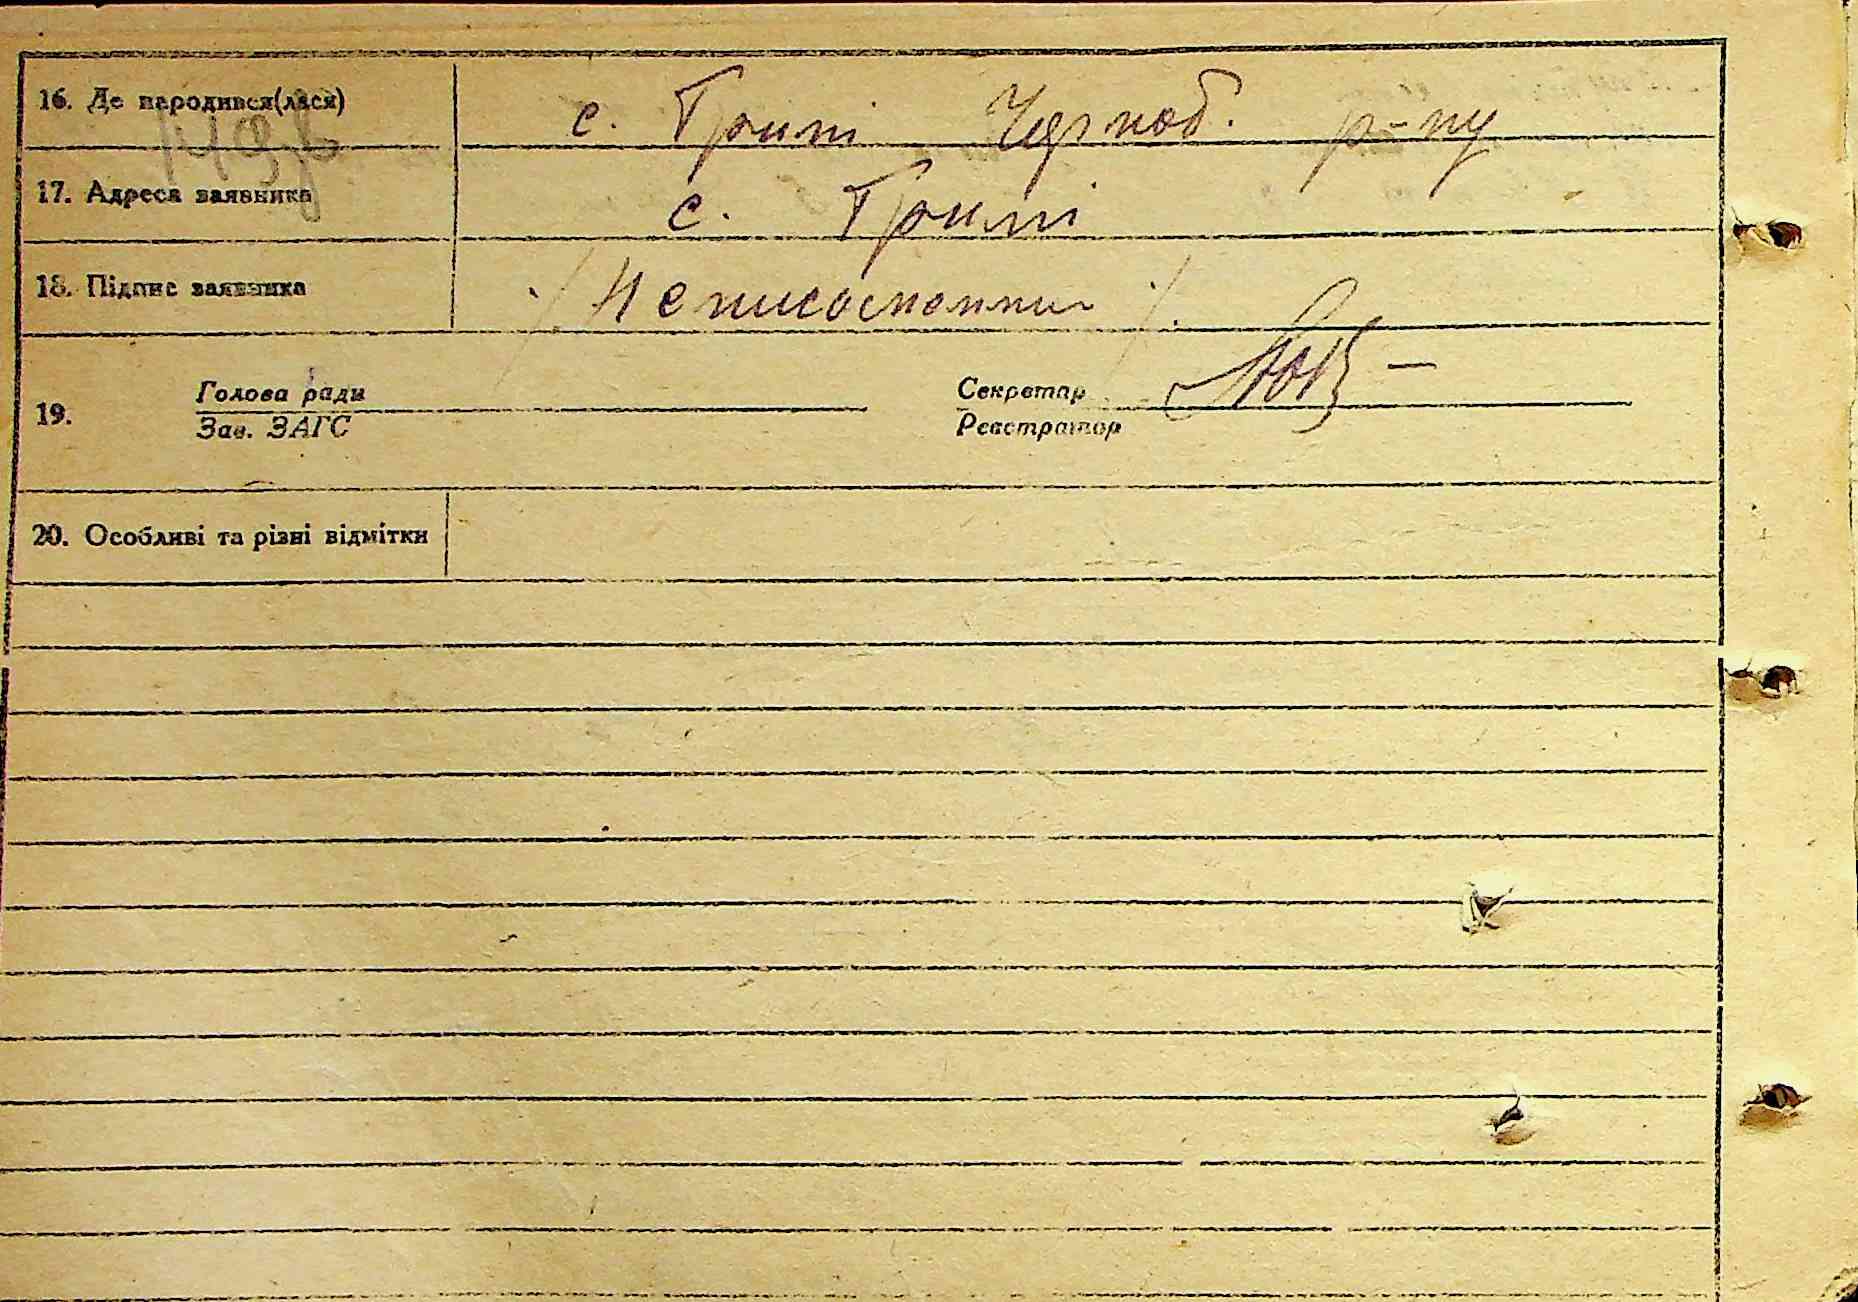 16. Де народився(лася) с. Грині Чорноб. р-ну
17. Адреса заявника с. Грині
18. Підпис заявника / Неписьменний /
19. Голова ради Секретар
Зав. ЗАГС Реєстратор
20. Особливі та різні відмітки